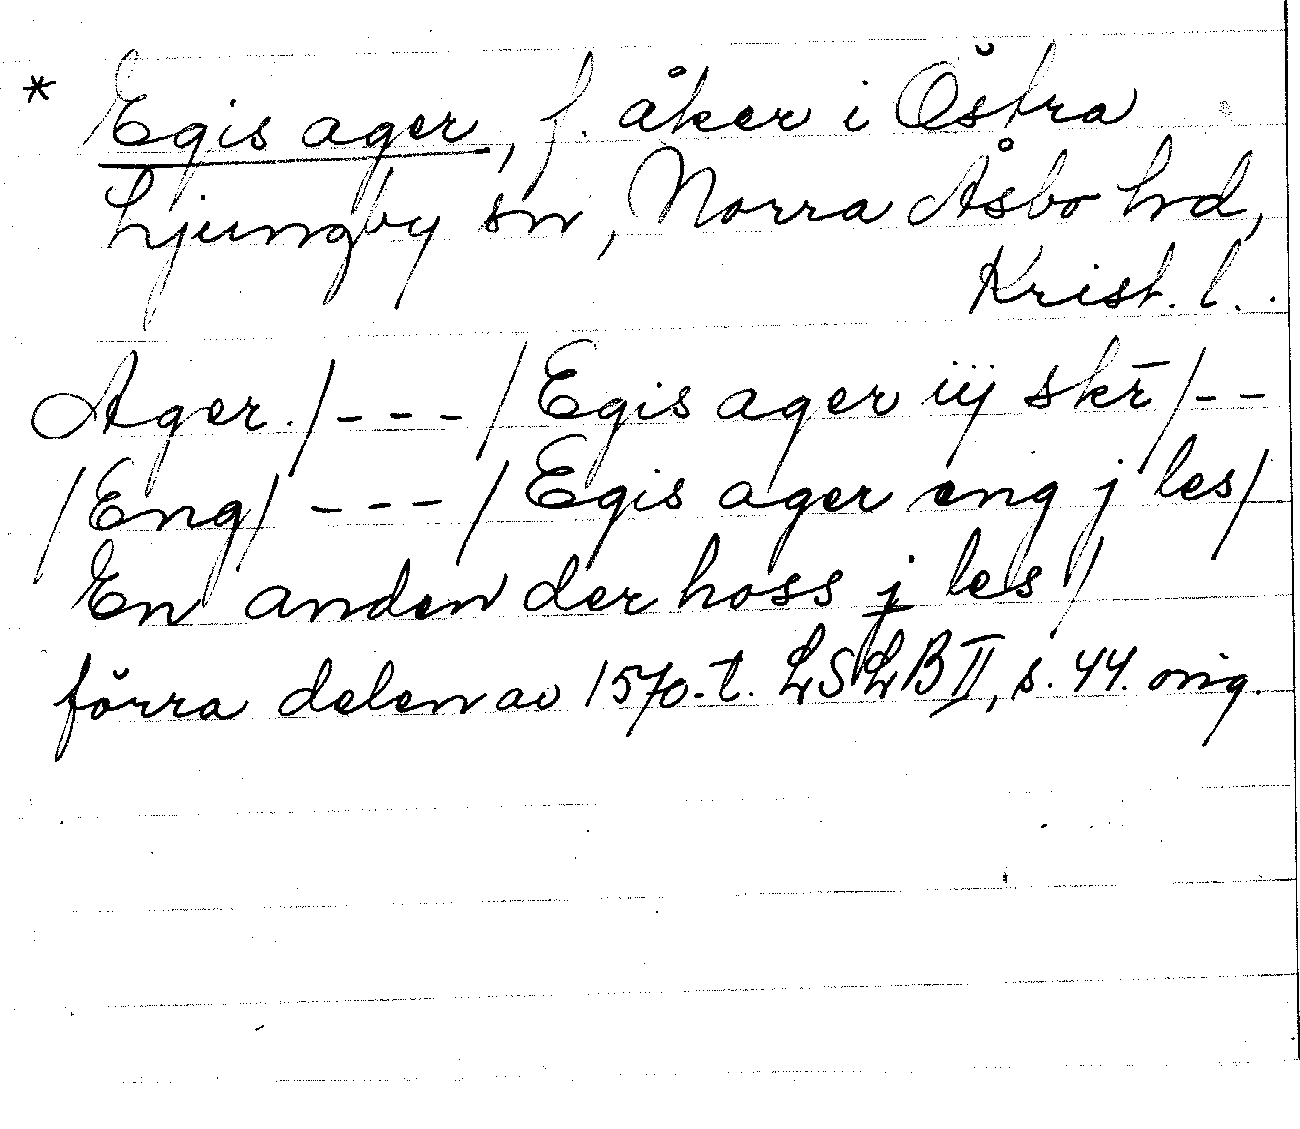 * Egis ager, f. åker i Östra
Ljungby sn, Norra Åsbo hd,
Krist. l.
Ager. / - - - / Egis ager iij skr̄ / - -
/ Eng / - - - / Egis ager eng j les /
En anden der hoss j les /
förra delen av 1570-t. LSLB II, s. 44. orig.